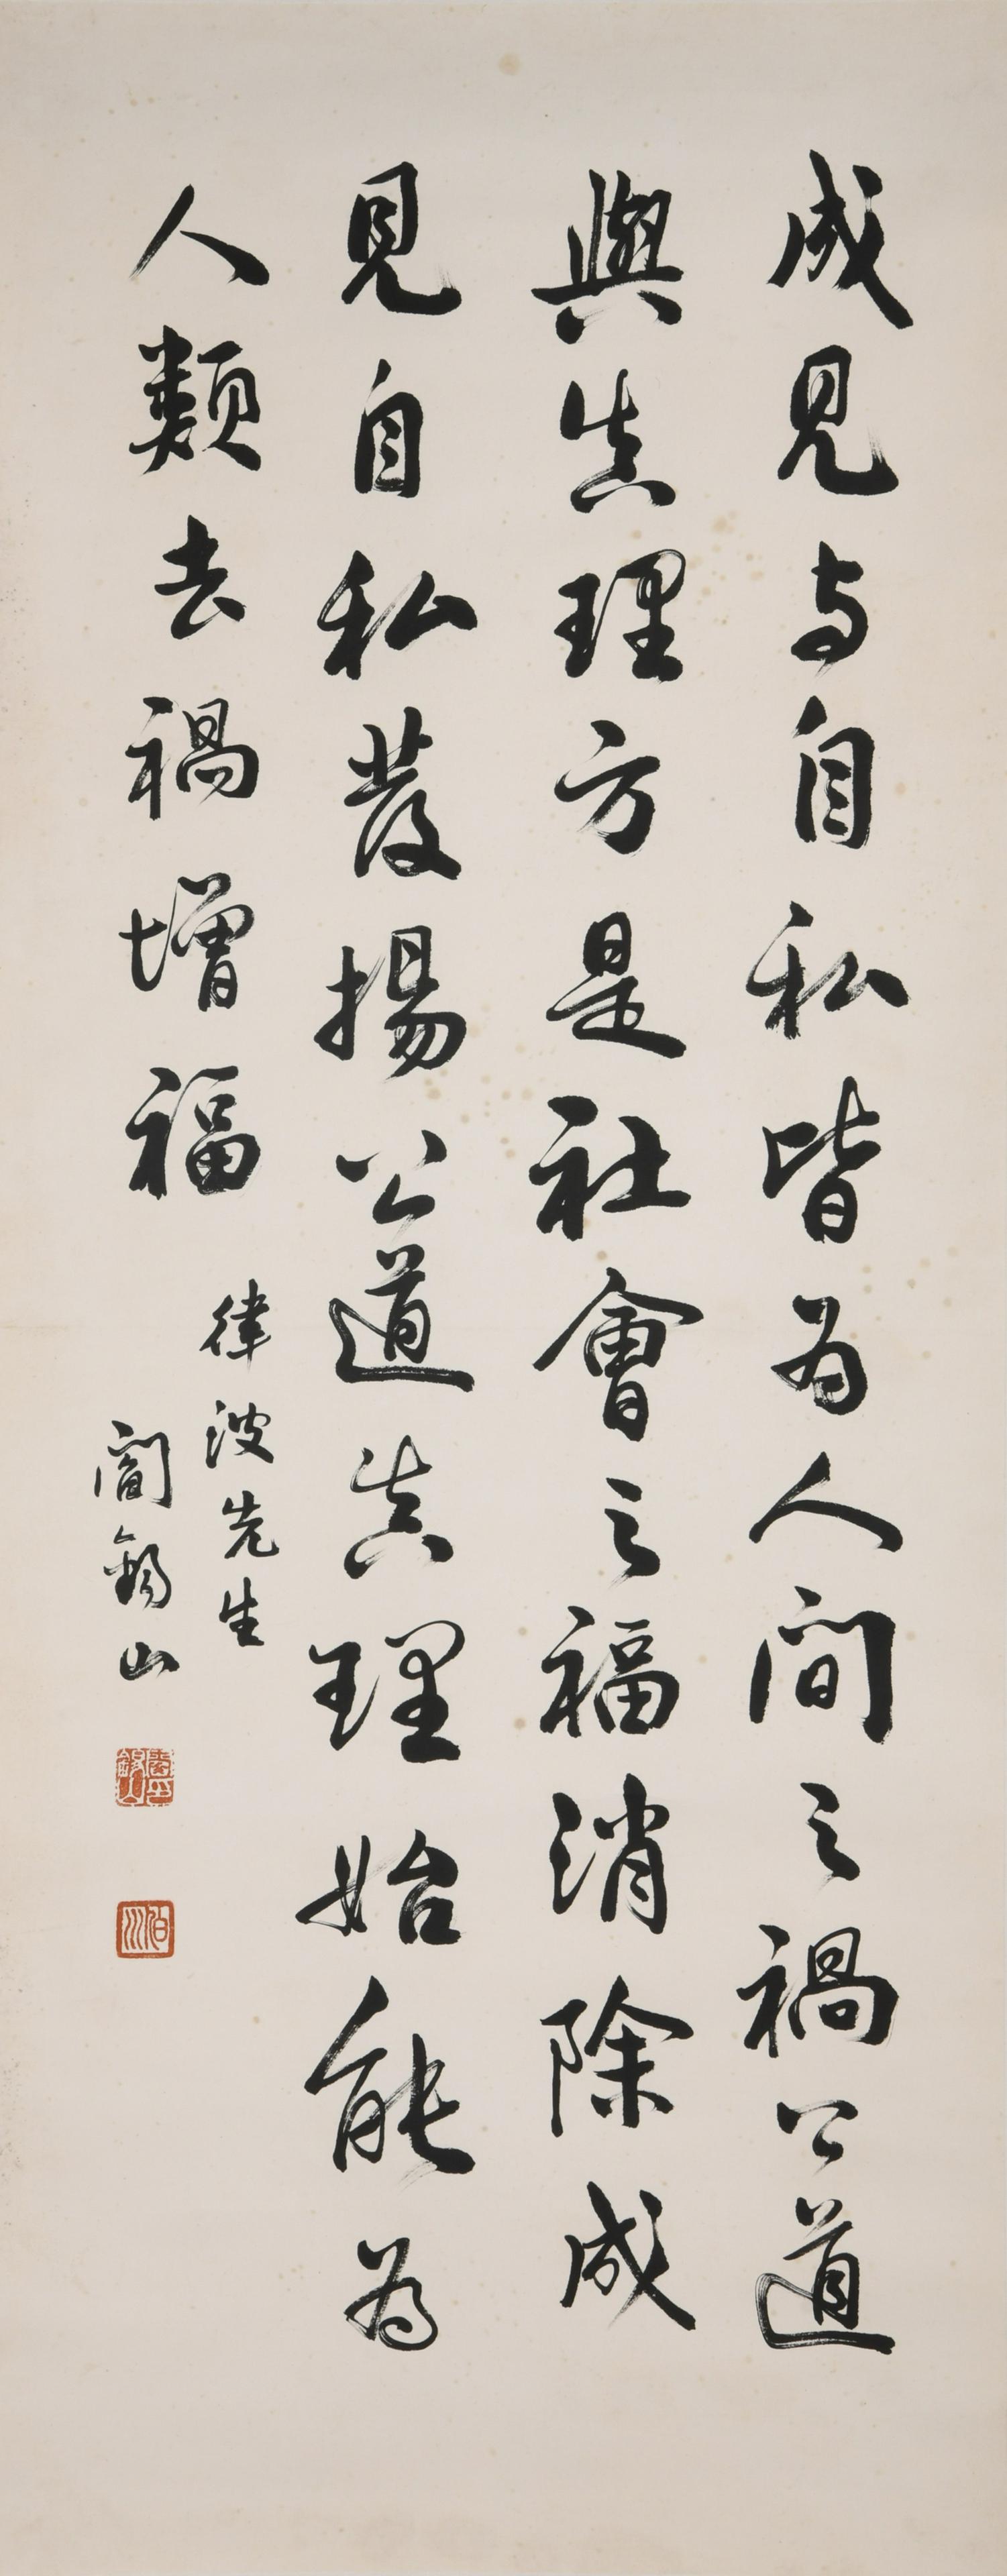 成見与自私皆為人間之禍公道
與真理方是社會之福消除成
見自私發揚公道真理始能為
人類去禍增福
律波先生
閻錫山
閻錫山印
伯川